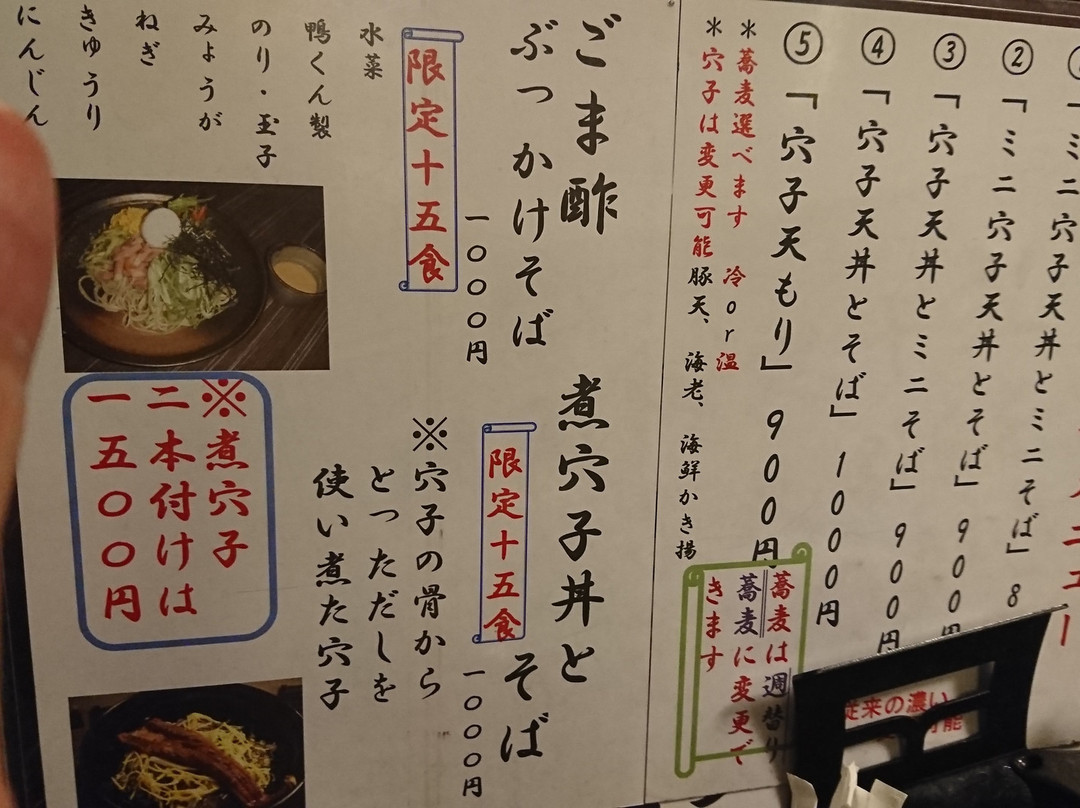 ニュー
「ミニ穴子天丼とミニ
②「ミニ穴子天丼とミニそば」 8
③「穴子天丼とそば」 900円
④「穴子天丼とミニそば」 900円
「穴子天丼とそば」 1000円
⑤「穴子天もり」 900円
＊蕎麦選べます 冷or温
＊穴子は変更可能 豚天、海老、海鮮かき揚
蕎麦は週替り
蕎麦に変更で
きます
従来の濃い
可能
ごま酢
ぶっかけそば
一〇〇〇円
限定十五食
水菜
鴨くん製
のり・玉子
みょうが
ねぎ
きゅうり
にんじん
煮穴子丼と
そば
限定十五食
一〇〇〇円
※穴子の骨から
とっただしを
使い煮た穴子
※煮穴子
二本付けは
一五〇〇円